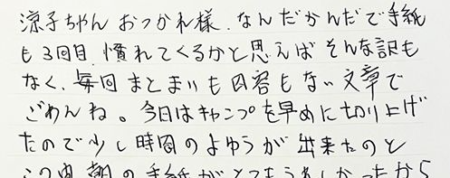 涼子ちゃん おつかれ様、なんだかんだで手紙
も3回目 慣れてくるかと思えば そんな訳も
なく、毎回まとまりも内容もない文章で
ごめんね。今日はキャンプを早めに切り上げ
たので少し時間のよゆうが出来たのと
この内 朝の手紙がとてもうれしかったから